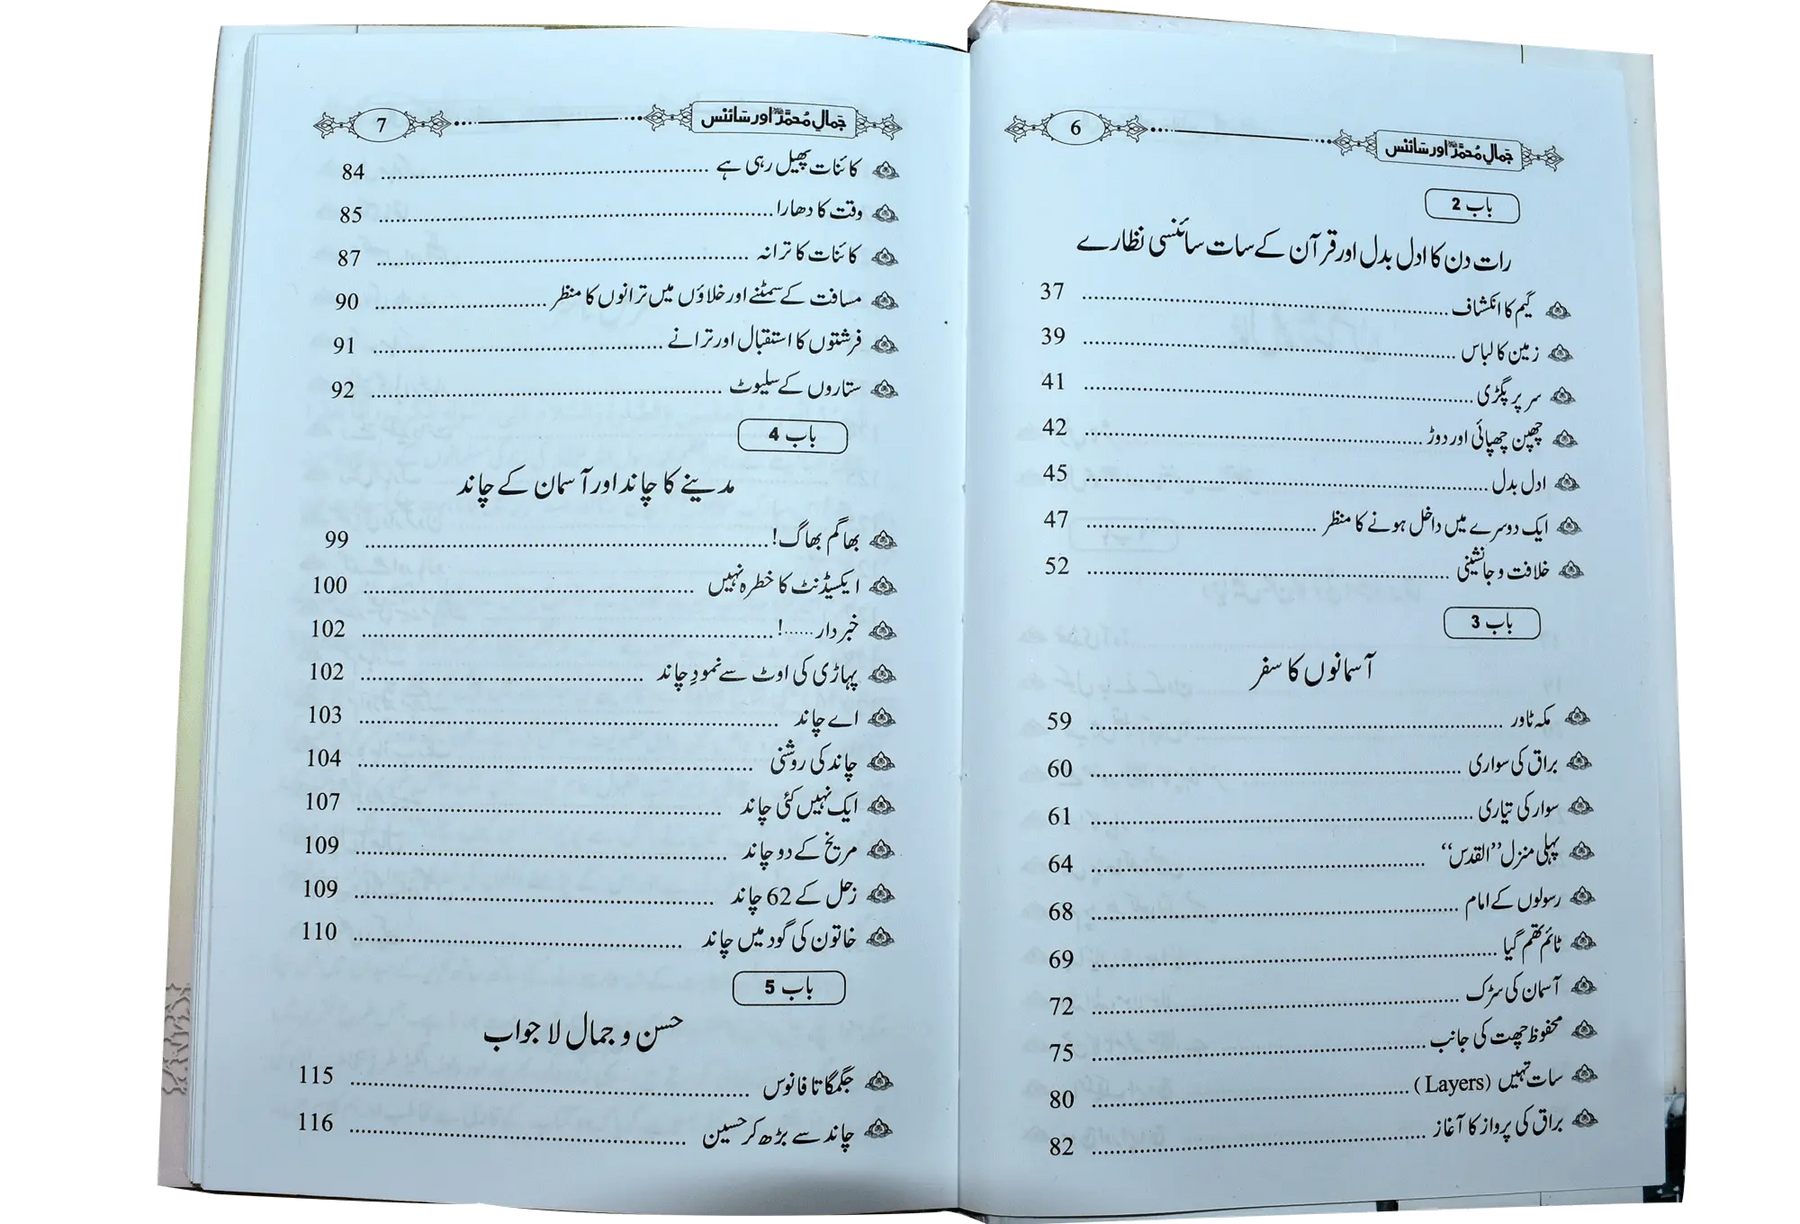 6 جمالِ محمدﷺ اور سائنس
باب 2
رات دن کا ادل بدل اور قرآن کے سات سائنسی نظارے
گیم کا انکشاف 37
زمین کا لباس 39
سر پر پگڑی 41
چھپن چھپائی اور دوڑ 42
ادل بدل 45
ایک دوسرے میں داخل ہونے کا منظر 47
خلافت و جانشینی 52
باب 3
آسمانوں کا سفر
مکہ ٹاور 59
براق کی سواری 60
سوار کی تیاری 61
پہلی منزل ”القدس“ 64
رسولوں کے امام 68
ٹائم تھم گیا 69
آسمان کی سڑک 72
محفوظ چھت کی جانب 75
سات تہیں (Layers) 80
براق کی پرواز کا آغاز 82
7 جمالِ محمدﷺ اور سائنس
کائنات پھیل رہی ہے 84
وقت کا دھارا 85
کائنات کا ترانہ 87
مسافت کے سمٹنے اور خلاؤں میں ترانوں کا منظر 90
فرشتوں کا استقبال اور ترانے 91
ستاروں کے سلیوٹ 92
باب 4
مدینے کا چاند اور آسمان کے چاند
بھاگم بھاگ! 99
ایکسیڈنٹ کا خطرہ نہیں 100
خبردار......! 102
پہاڑی کی اوٹ سے نمودِ چاند 102
اے چاند 103
چاند کی روشنی 104
ایک نہیں کئی چاند 107
مریخ کے دو چاند 109
زحل کے 62 چاند 109
خاتون کی گود میں چاند 110
باب 5
حسن و جمال لا جواب
جگمگاتا فانوس 115
چاند سے بڑھ کر حسین 116